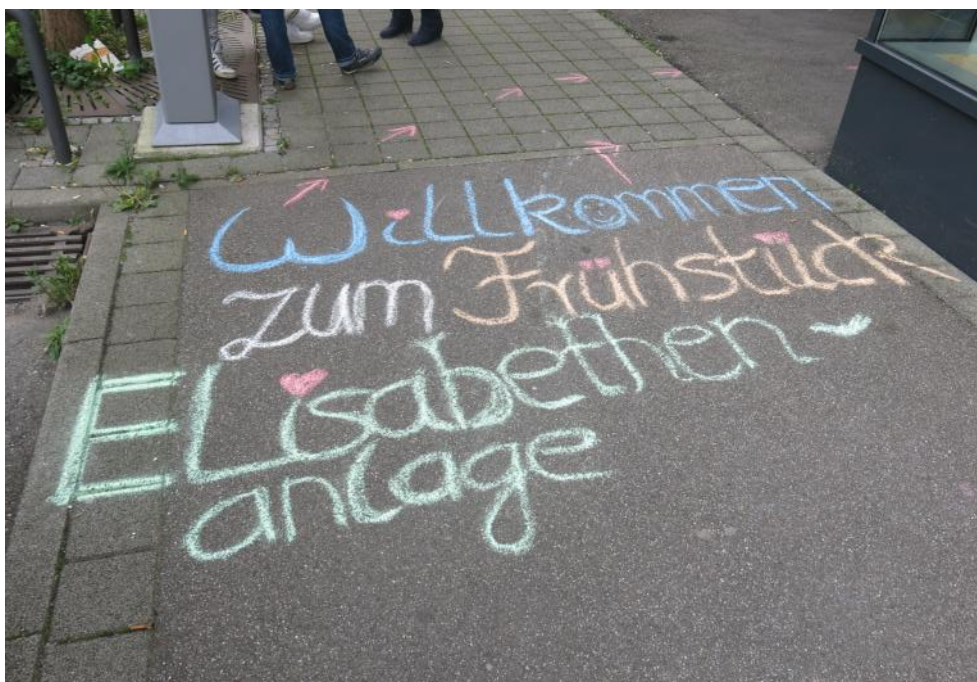 Willkommen
zum Frühstück
Elisabethen-
anlage